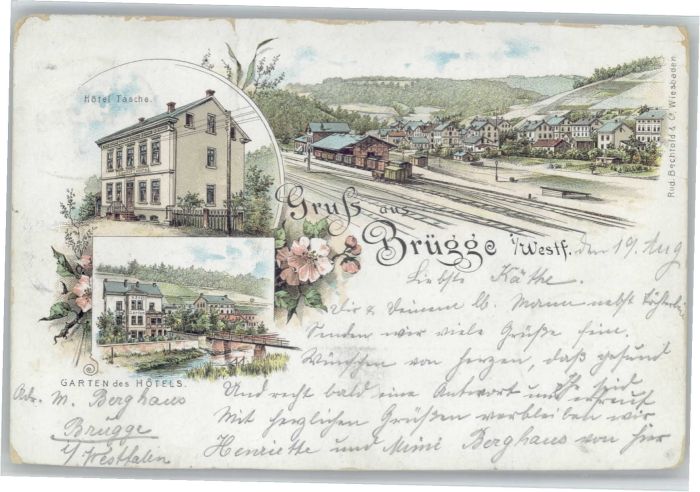 Hôtel Tasche.
Gruß aus
Brügge i/Westf.
Rud. Bechtold & Co, Wiesbaden
den 19. Aug
Liebste Käthe.
Dir & Deinem lb. Mann nebst
Senden wir viele Grüße
Wünschen von herzen, daß gesund
Ihr seid
Und recht bald eine Antwort und
Mit herzlichen Grüßen verbleiben wir
Henriette und Mimi Berghaus von hier
GARTEN des HÔTELS.
Adr. M. Berghaus
Brügge
i/Westfalen